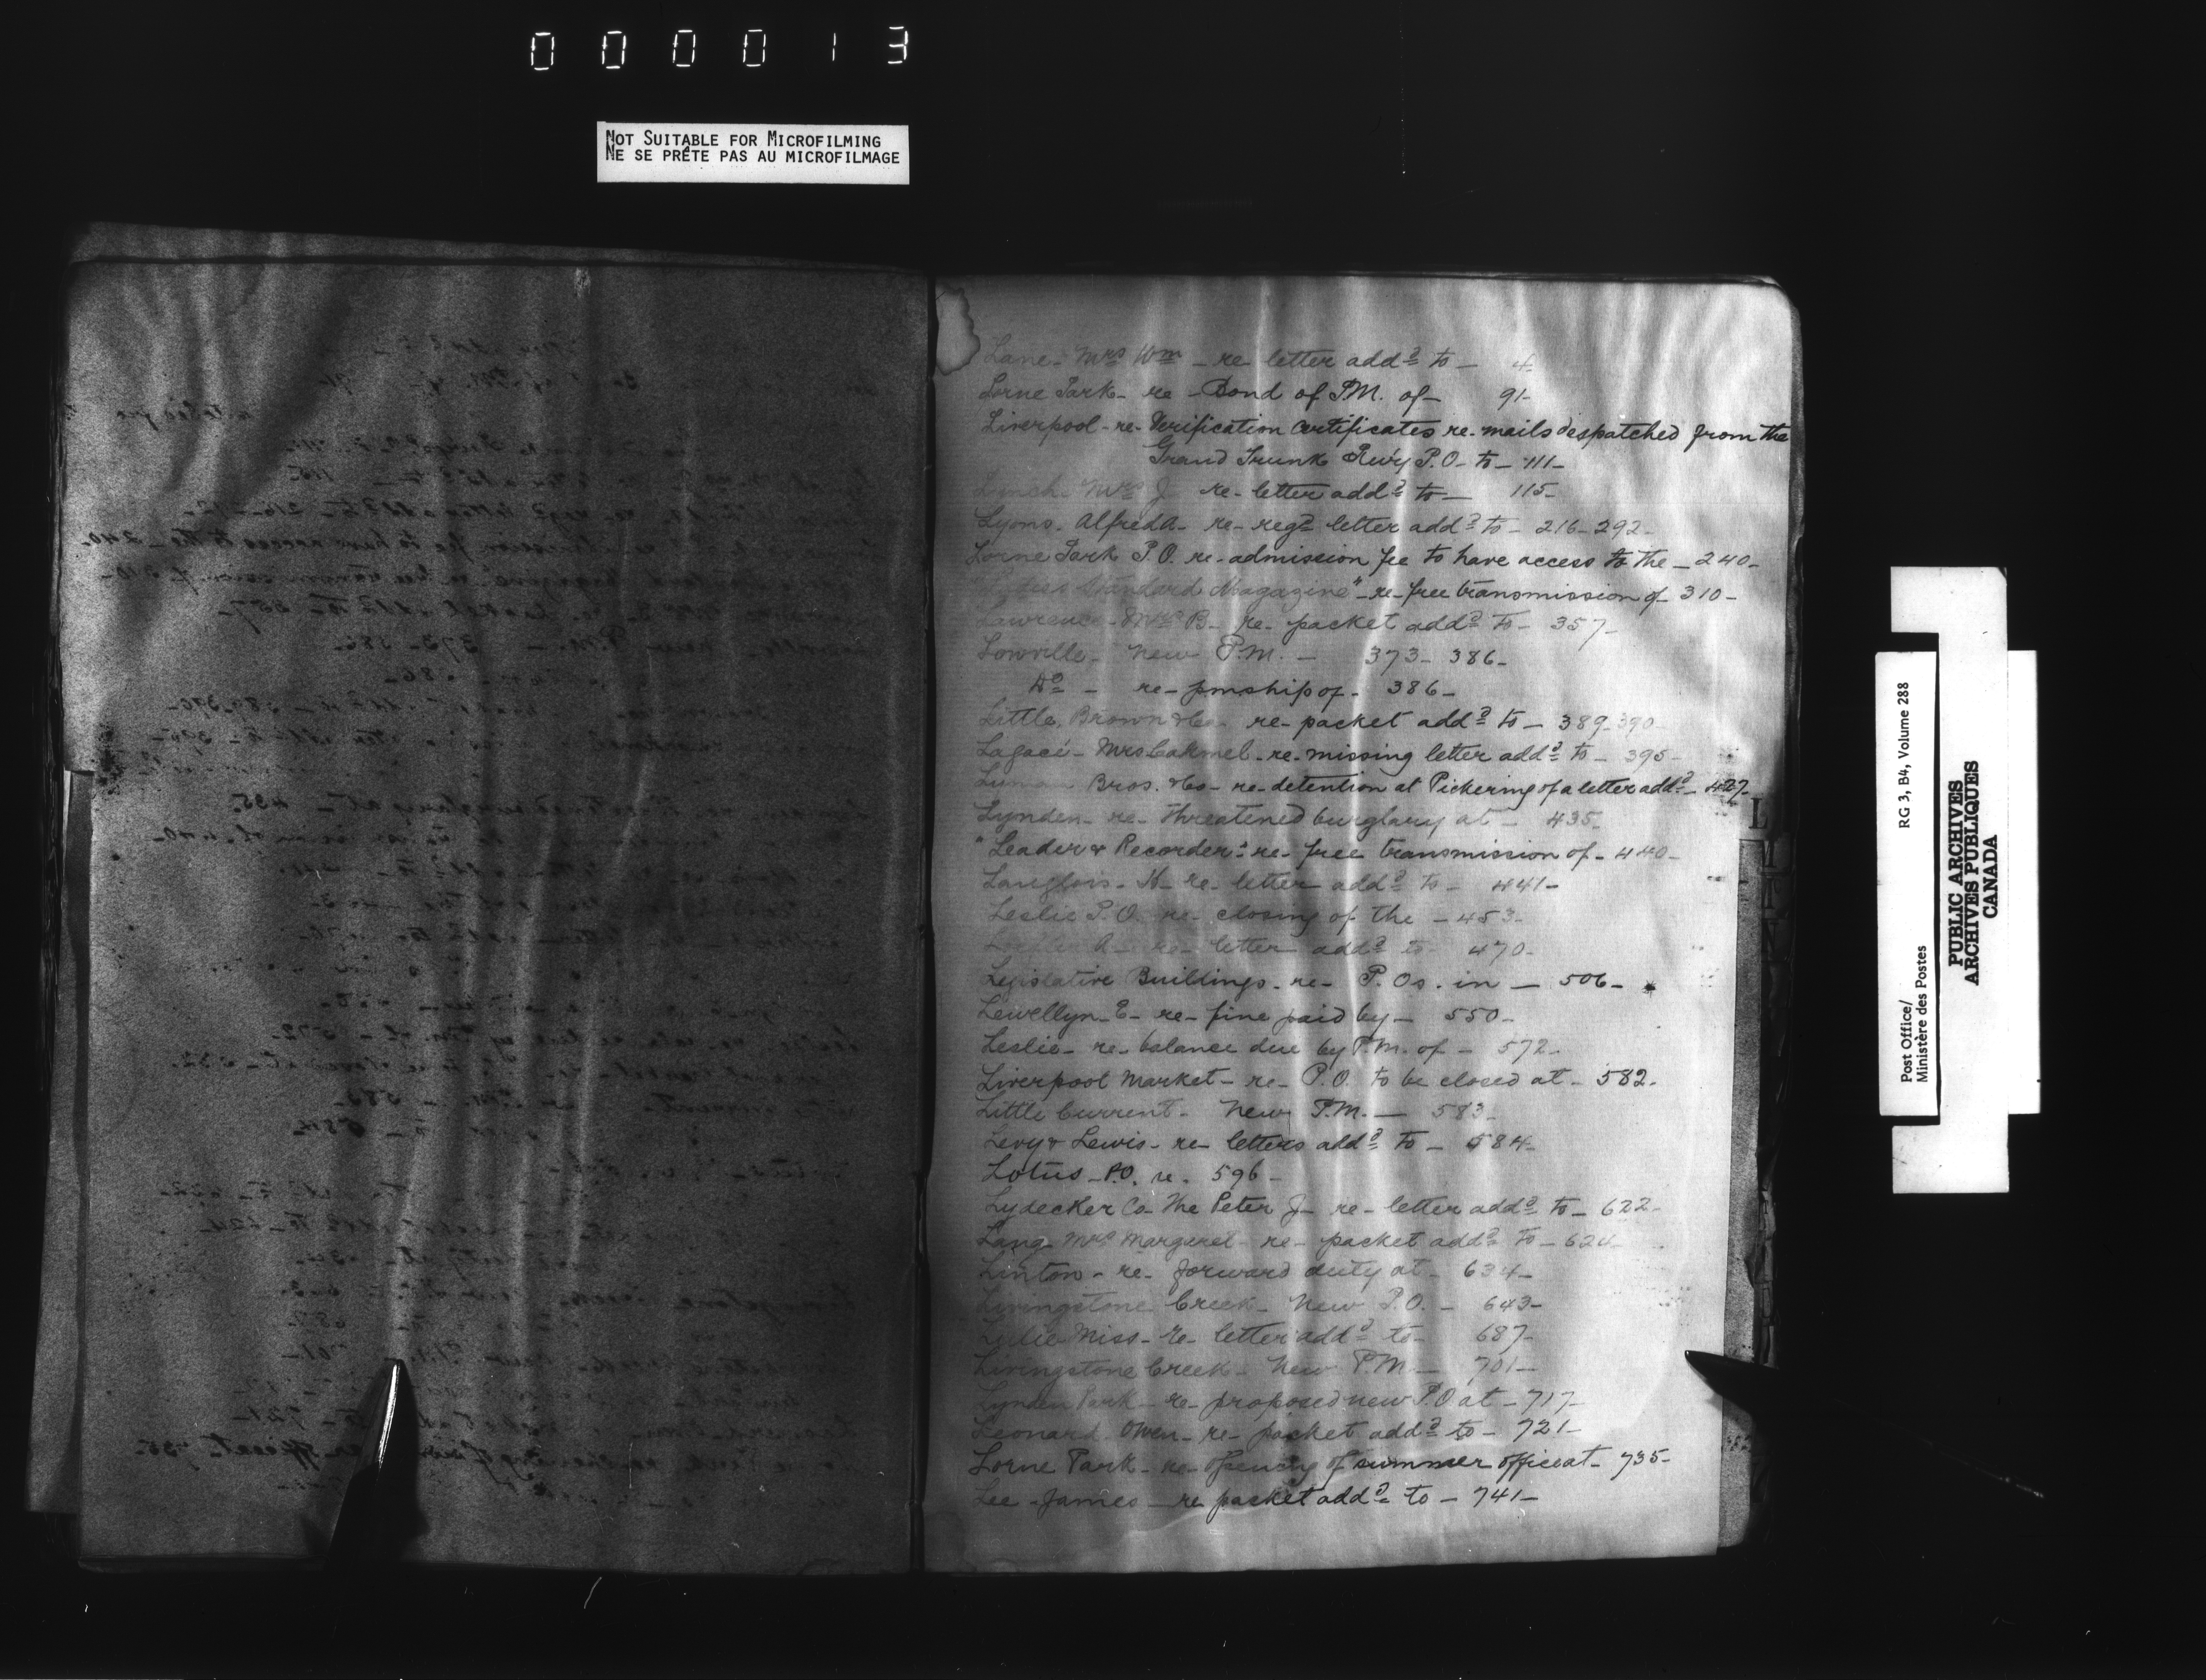 000013
NOT SUITABLE FOR MICROFILMING
NE SE PRÊTE PAS AU MICROFILMAGE
Lane - Mrs Wm - re letter addd to - 4
Lorne Park - re - Bond of P.M. of - 91 -
Liverpool - re - Verification Certificates re - mails despatched from the
Grand Trunk Rwy P.O. to - 111 -
Lynch Mrs J re - letter addd to - 115 -
Lyons. Alfred A - re - regd letter addd to - 216 - 292 -
Lorne Park P.O. re - admission fee to have access to the - 240 -
Standard Magazine" - re - free transmission of - 310 -
Lawrence - Mrs B - re - packet addd to - 357 -
Lowville - New P.M. - 373 - 386 -
Do - re - pmship of - 386 -
Little, Brown & Co - re - packet addd to - 389 - 390 -
Lagacé - Mrs Carmel - re - missing letter addd to - 395 -
Bros. & Co - re - detention at Pickering of a letter addd - 427 -
Lynden - re - threatened burglary at - 435 -
"Leader & Recorder" re - free transmission of - 440 -
Langlois - N - re - letter addd to - 441 -
Leslie P.O. re - closing of the - 453 -
A - re - letter addd to - 470 -
Legislative Buildings - re - P.Os. in - 506 -
Lewellyn - E - re - fine paid by - 550 -
Leslie - re - balance due by P.M. of - 572 -
Liverpool Market - re - P.O. to be closed at - 582 -
Little Current - New P.M. - 583 -
Levy & Lewis - re - letters addd to - 584 -
Lotus - P.O. re - 596 -
Lydecker Co - The Peter J - re - letter addd to - 622 -
Lang Mrs Margaret - re - packet addd to - 624 -
Linton - re - forward duty at - 634 -
Livingstone Creek - New P.O. - 643 -
Miss - re - letter addd to - 687 -
Livingstone Creek - New P.M. - 701 -
Lynden Park - re - proposed new P.O at - 717 -
Leonard. Owen - re - packet addd to - 721 -
Lorne Park - re - opening of summer office at - 735 -
Lee - James - re packet addd to - 741 -
L
M
N
Post Office/ RG 3, B4, Volume 288
Ministère des Postes
PUBLIC ARCHIVES
ARCHIVES PUBLIQUES
CANADA